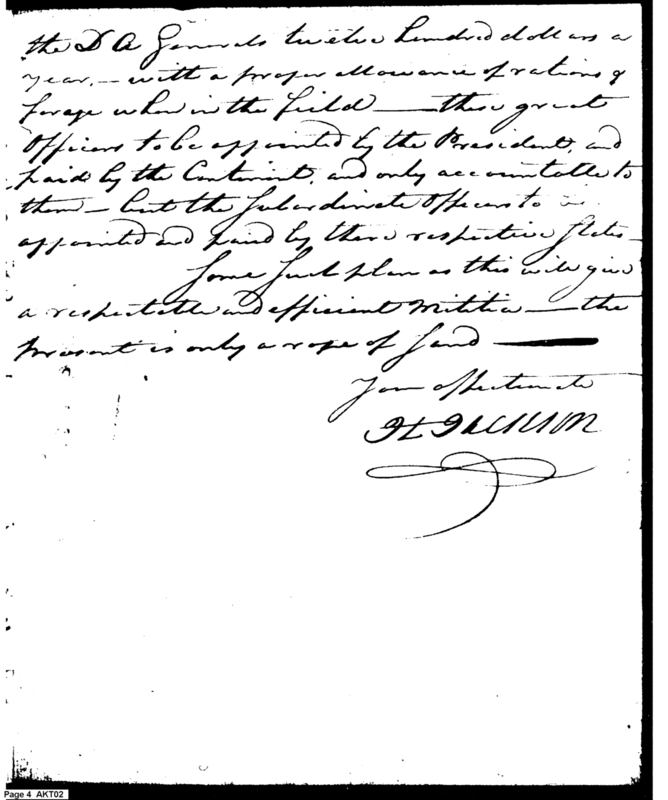 the D A Generals twelve hundred dollars a
year, — with a proper allowance of rations &
forage when in the field — these great
Officers to be appointed by the President, and
paid by the Continent, and only accountable to
them — but the Subordinate Officers to
appointed and paid by there respective States —
Some Such plan as this will give
a respectable and efficient Militia — the
present is only a rope of Sand —
Your affectionate
JACKSON
Page 4 AKT02